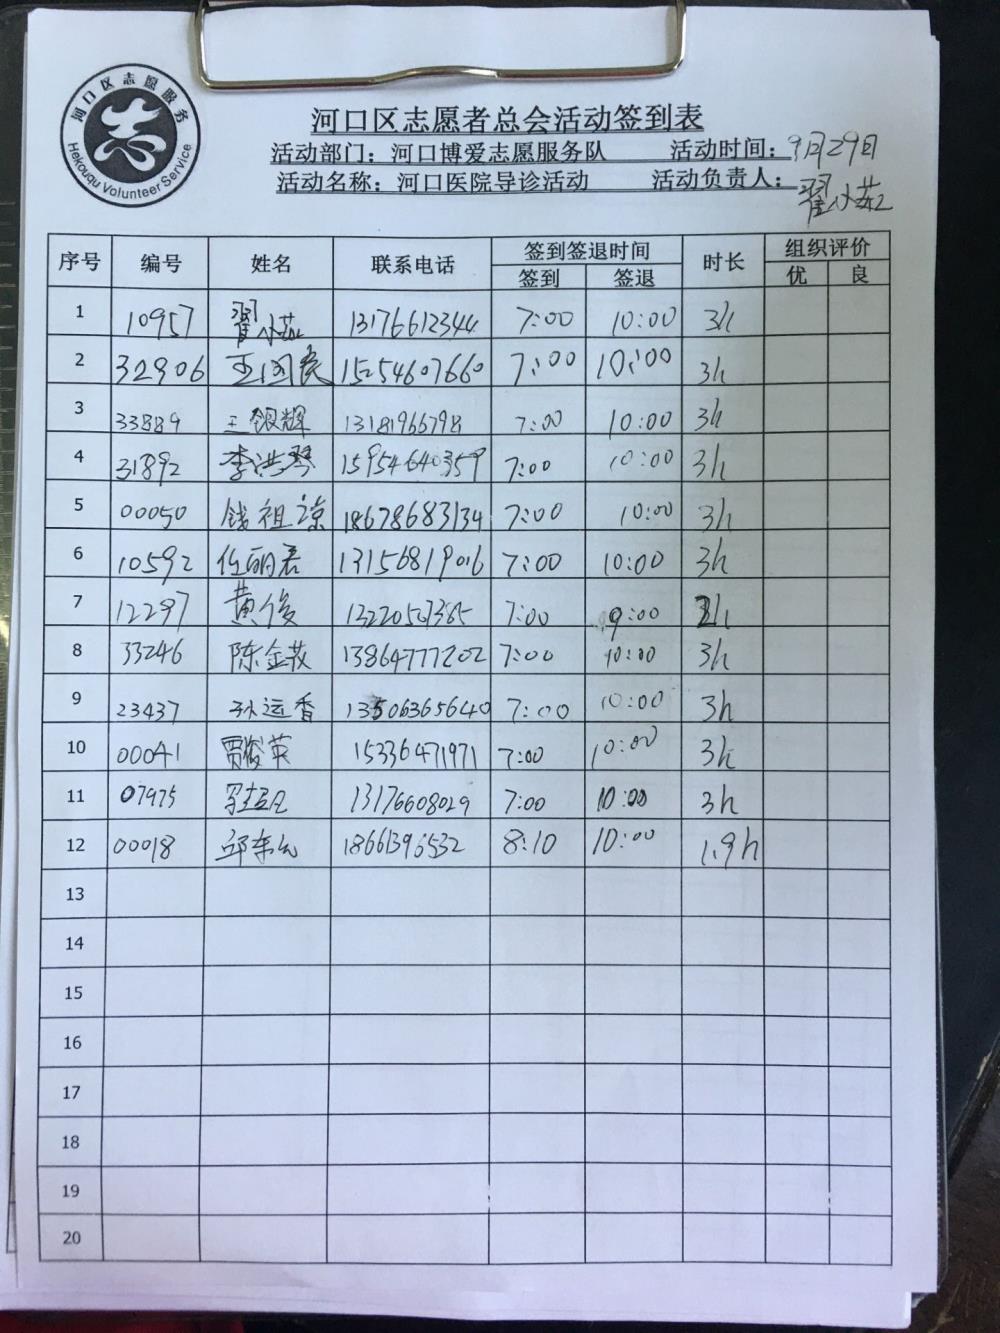 河口区志愿服务
志
Hekouqu Volunteer Service
河口区志愿者总会活动签到表
活动部门：河口博爱志愿服务队 活动时间：9月29日
活动名称：河口医院导诊活动 活动负责人：翟小茹
序号 编号 姓名 联系电话 签到签退时间 时长 组织评价
签到 签退 优 良
1 10957 翟小茹 13176612344 7:00 10:00 3h
2 32906 王国良 15254607660 7:00 10:00 3h
3 33889 王银辉 13181966798 7:00 10:00 3h
4 31892 李洪琴 15954640359 7:00 10:00 3h
5 00050 钱祖凉 18678683134 7:00 10:00 3h
6 10592 任丽君 13156819016 7:00 10:00 3h
7 12297 黄俊 7:00 9:00 2h
8 33246 陈金 13864777202 7:00 10:00 3h
9 23437 孙远香 13506365640 7:00 10:00 3h
10 00041 贾俊英 15336471971 7:00 10:00 3h
11 07975 13176608029 7:00 10:00 3h
12 00018 18661396532 8:10 10:00 1.9h
13
14
15
16
17
18
19
20